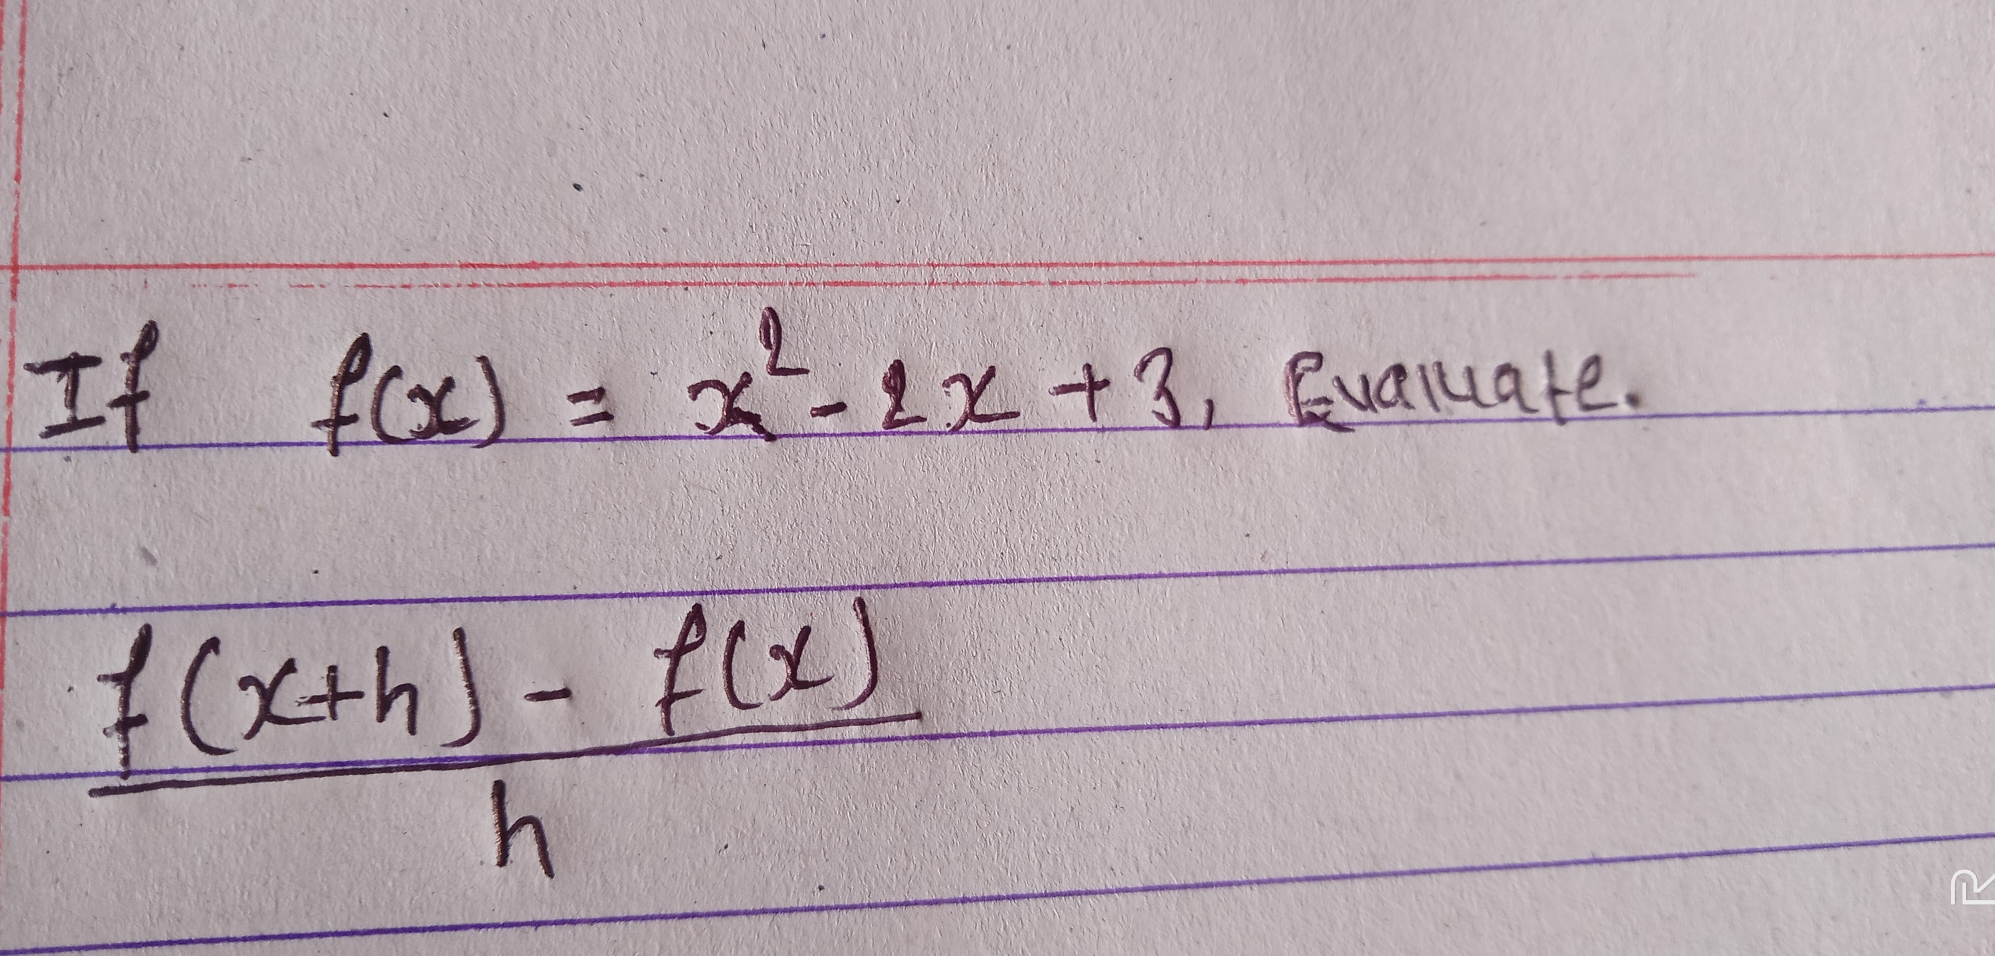 If f(x) = x² - 2x + 3, Evaluate.
f(x+h) - f(x)
h